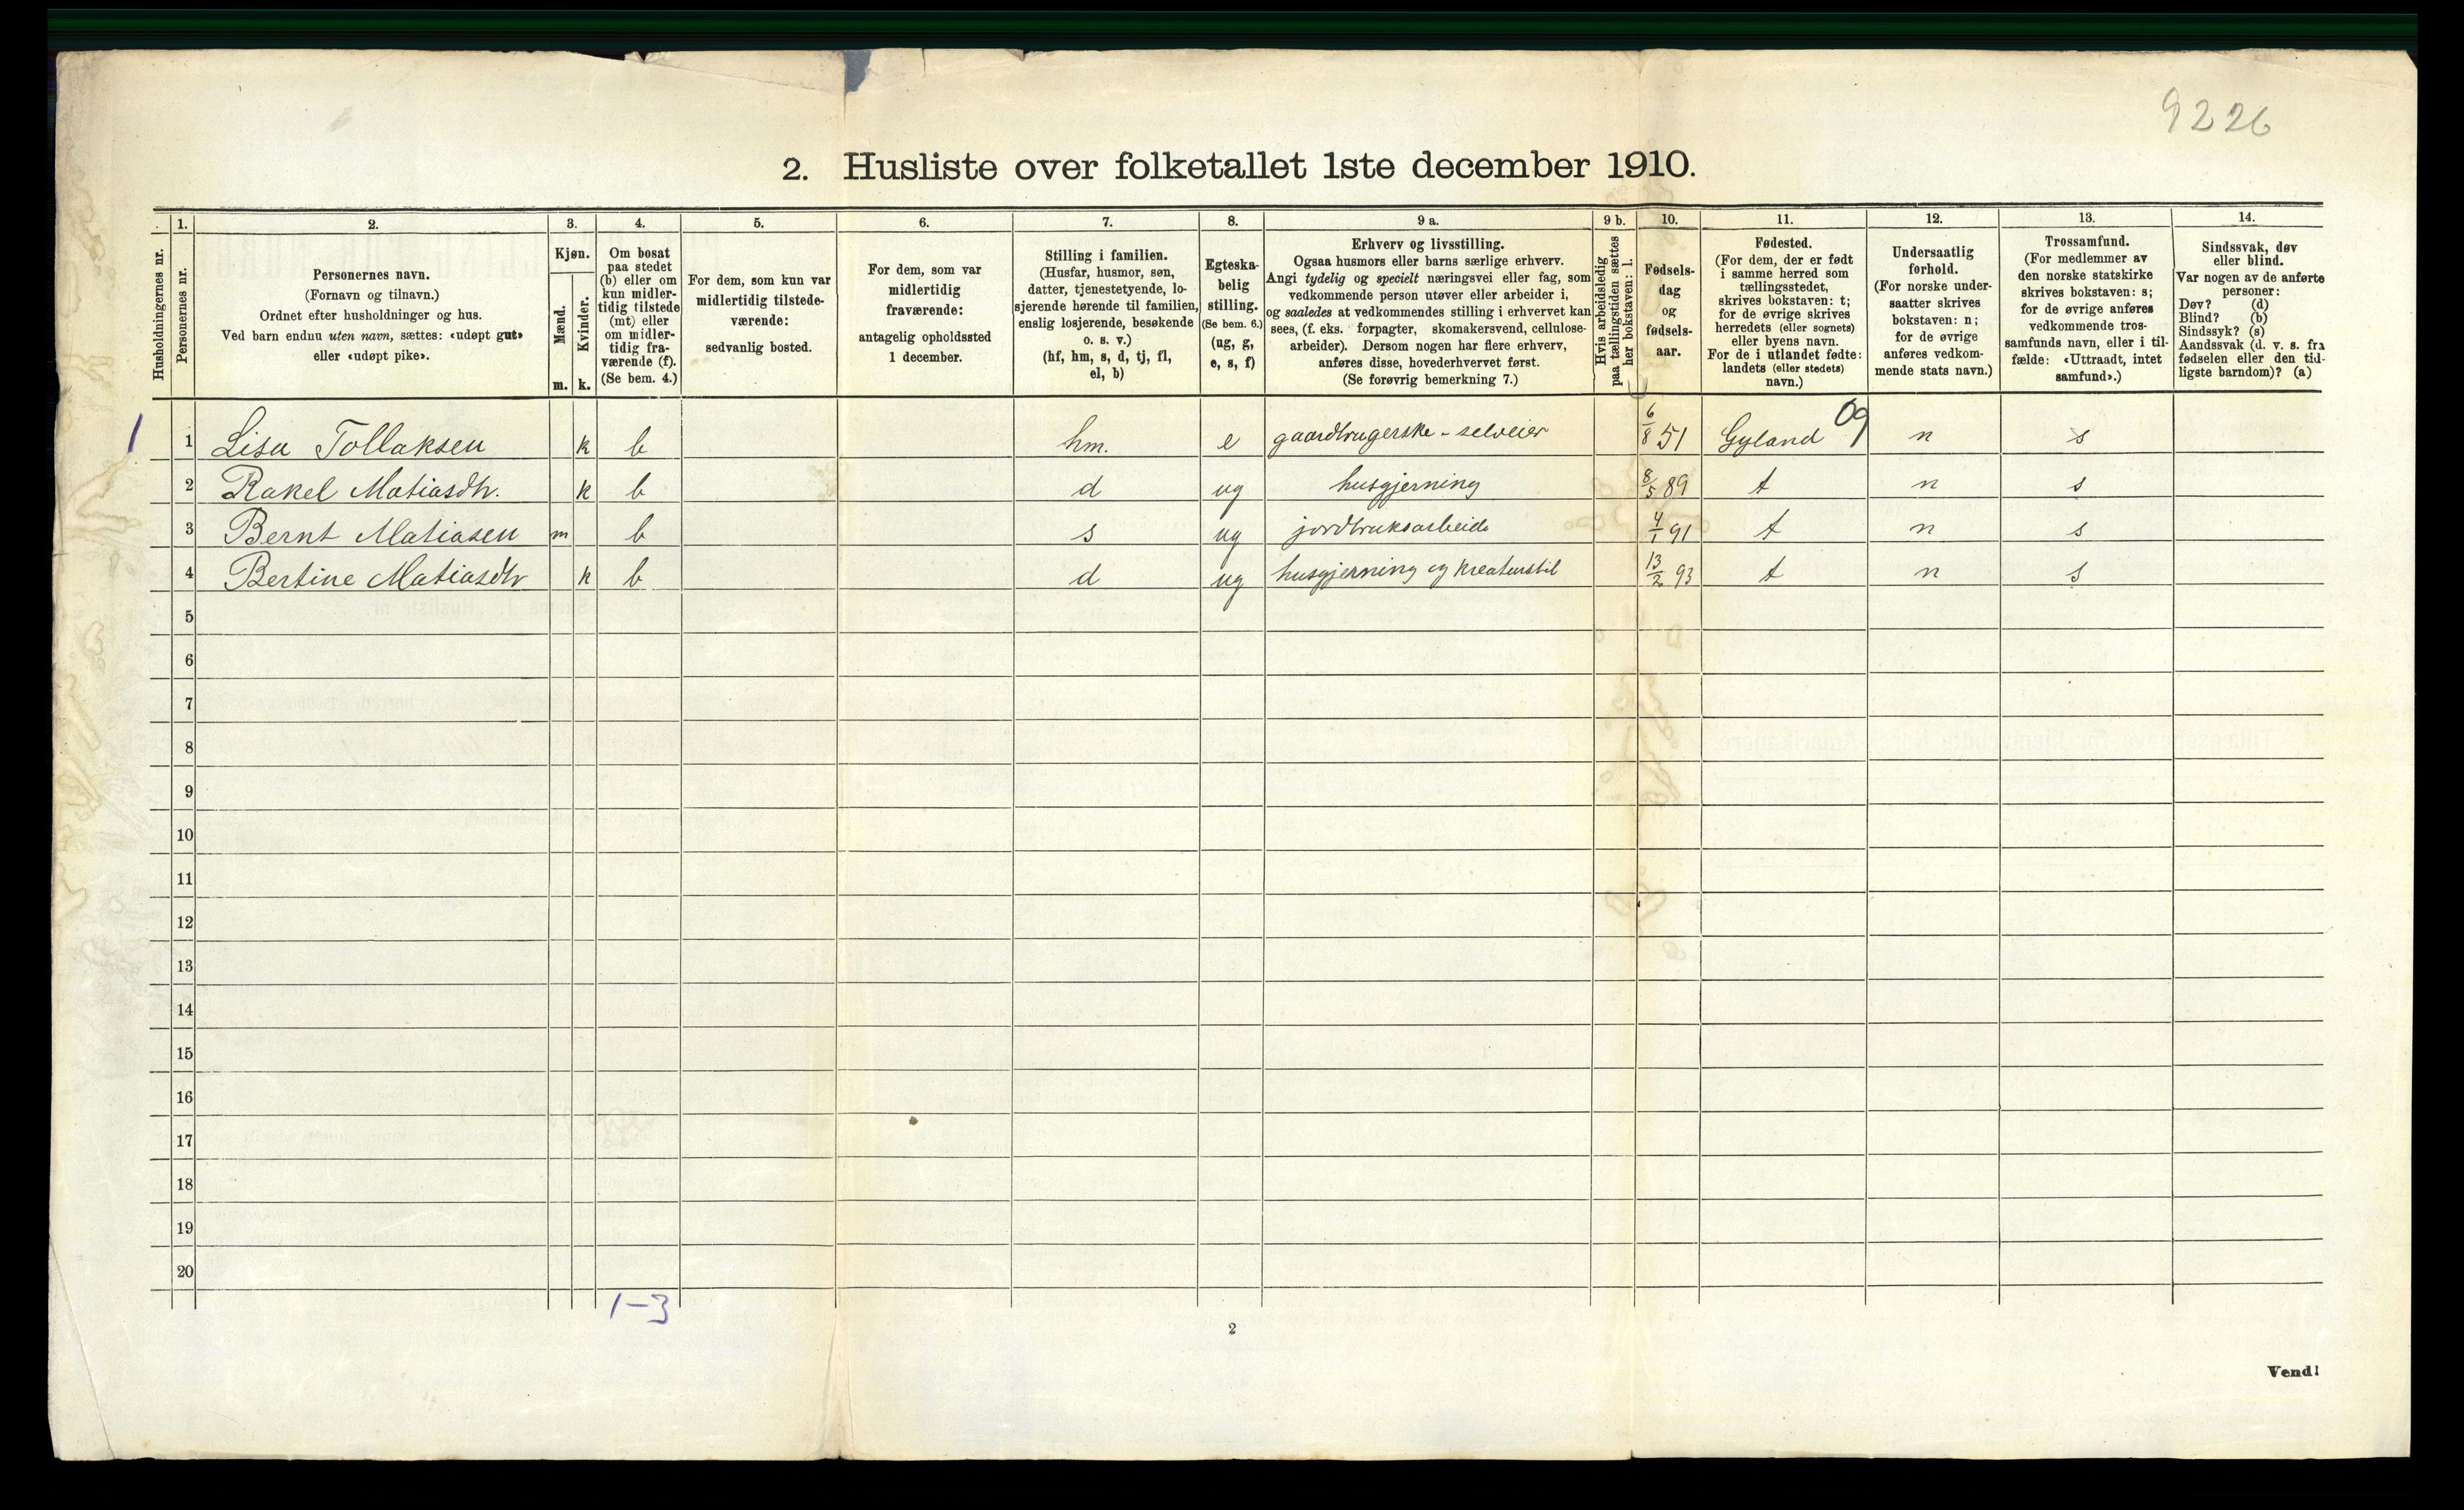 9226
2. Husliste over folketallet 1ste december 1910.
Husholdningernes nr.
1.
Personernes nr.
2.
Personernes navn.
(Fornavn og tilnavn.)
Ordnet efter husholdninger og hus.
Ved barn endnu uten navn, sættes: «udøpt gut»
eller «udøpt pike».
3.
Kjøn.
Mænd.
m.
Kvinder.
k.
4.
Om bosat
paa stedet
(b) eller om
kun midler-
tidig tilstede
(mt) eller
om midler-
tidig fra-
værende (f).
(Se bem. 4.)
5.
For dem, som kun var
midlertidig tilstede-
værende:
sedvanlig bosted.
6.
For dem, som var
midlertidig
fraværende:
antagelig opholdssted
1 december.
7.
Stilling i familien.
(Husfar, husmor, søn,
datter, tjenestetyende, lo-
sjerende hørende til familien,
enslig losjerende, besøkende
o. s. v.)
(hf, hm, s, d, tj, fl,
el, b)
8.
Egteska-
belig
stilling.
(Se bem. 6.)
(ug, g,
e, s, f)
9 a.
Erhverv og livsstilling.
Ogsaa husmors eller barns særlige erhverv.
Angi tydelig og specielt næringsvei eller fag, som
vedkommende person utøver eller arbeider i,
og saaledes at vedkommendes stilling i erhvervet kan
sees, (f. eks. forpagter, skomakersvend, cellulose-
arbeider). Dersom nogen har flere erhverv,
anføres disse, hovederhvervet først.
(Se forøvrig bemerkning 7.)
9 b.
Hvis arbeidsledig
paa tællingstiden sættes
her bokstaven: l.
10.
Fødsels-
dag
og
fødsels-
aar.
11.
Fødested.
(For dem, der er født
i samme herred som
tællingsstedet,
skrives bokstaven: t;
for de øvrige skrives
herredets (eller sognets)
eller byens navn.
For de i utlandet fødte:
landets (eller stedets)
navn.)
12.
Undersaatlig
forhold.
(For norske under-
saatter skrives
bokstaven: n;
for de øvrige
anføres vedkom-
mende stats navn.)
13.
Trossamfund.
(For medlemmer av
den norske statskirke
skrives bokstaven: s;
for de øvrige anføres
vedkommende tros-
samfunds navn, eller i til-
fælde: «Uttraadt, intet
samfund».)
14.
Sindssvak, døv
eller blind.
Var nogen av de anførte
personer:
Døv? (d)
Blind? (b)
Sindssyk? (s)
Aandssvak (d. v. s. fra
fødselen eller den tid-
ligste barndom)? (a)
1 1 Lisa Tollaksen k b hm. e gaardbrugerske - selveier 6/8 51 Gyland 09 n s
2 Rakel Matiasdtr. k b d ug husgjerning 8/5 89 t n s
3 Bernt Matiasen m b s ug jordbruksarbeide 4/1 91 t n s
4 Bertine Matiasdtr k b d ug husgjerning og kreaturstil 13/2 93 t n s
5
6
7
8
9
10
11
12
13
14
15
16
17
18
19
20
1-3
2
Vend!